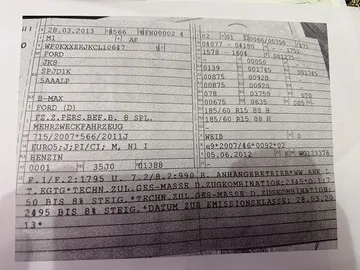 28.03.2013 8566
M1 AF
WF0KXXERJKCL10647
FORD
JK8
SPJD1K
5AAALP
B-MAX
FORD (D)
FZ.Z.PERS.BEF.B. 8 SPL.
MEHRZWECKFAHRZEUG
715/2007*566/2011J
EURO5;J;PI/CI; M, N1 I
BENZIN
0001 35J0 01388
02 01
04077 - 04180
1578 - 1604
00050
0139 001745 001745
00875 00920
00875 00920
078 03750
00675 0635 005
185/60 R15 88 H
185/60 R15 88 H
WEIß 0
e9*2007/46*0092*02
05.06.2012
F.1/F.2:1795 U. 7.2/8.2:990 B. ANHÄNGERBETRIEB*WW.AHK
T.EGTG*TECHN.ZUL.GES-MASSE D.ZUGKOMBINATION:
50 BIS 8% STEIG.*TECHN.ZUL.GES-MASSE D.ZUGKOMBINATION:
2495 BIS 8% STEIG.*DATUM ZUR EMISSIONSKLASSE: 28.03.20
13*